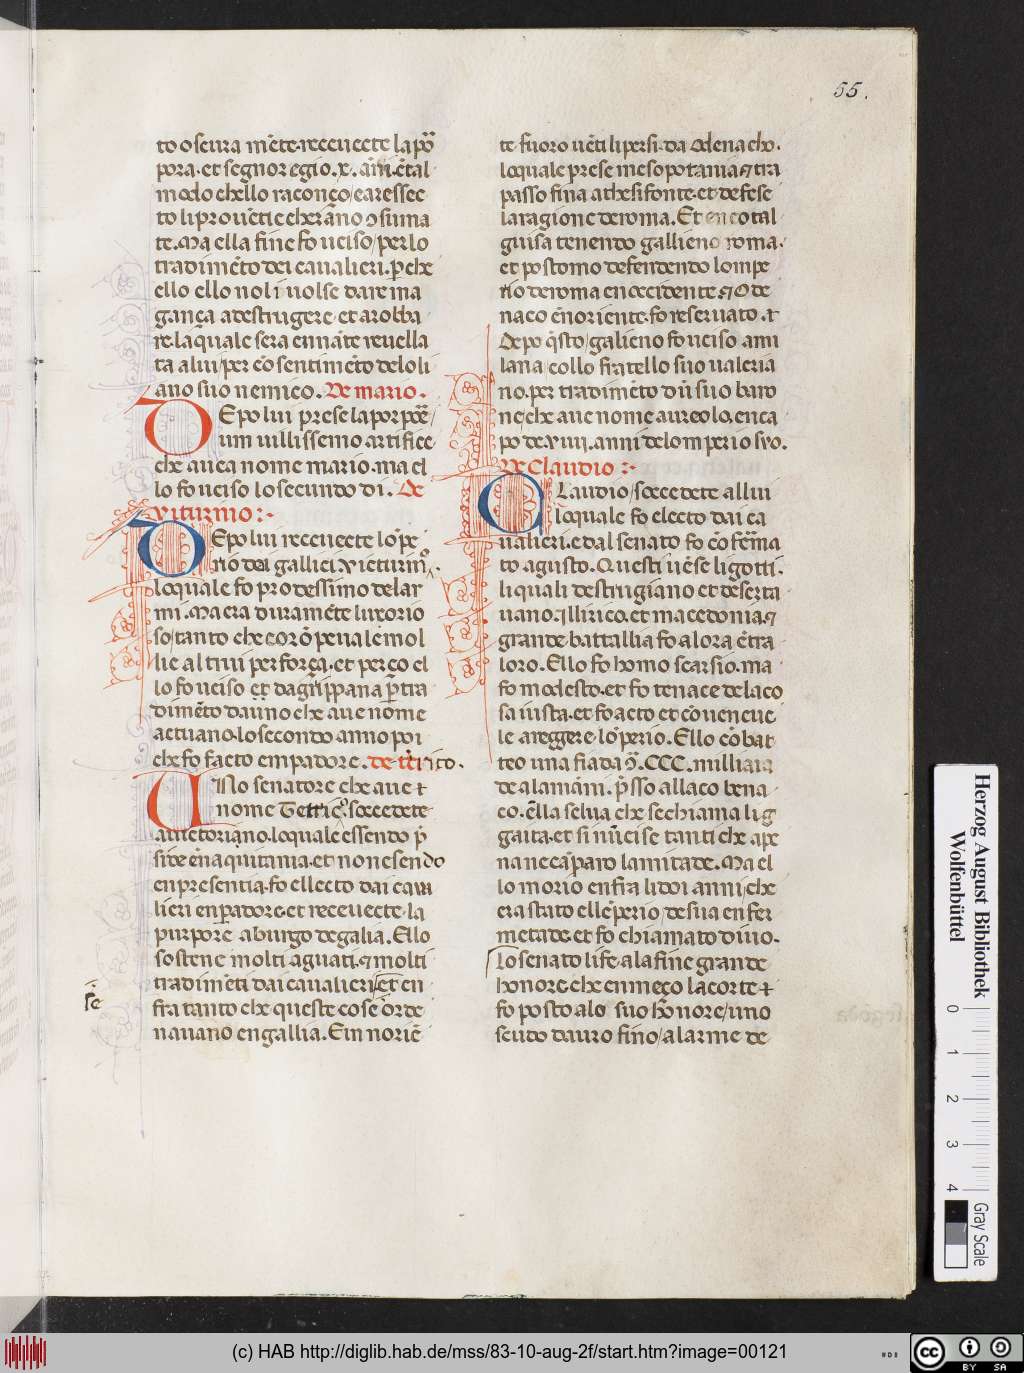 55.
to oscura mẽte. recevecte la põ
pora. et segnoregio. x. ãni. ẽ tal
modo che llo raconço / e aressec
to li provẽtie che erãno ɔsuma
te. Ma ella fine fo ucciso / per lo
tradimẽto dei cavalieri. p̃ che
ello ello no li volse dare in a
gança a destrugere et a robba
re. la quale sera ennãte revella
ta a lui / per cõsentimẽto de loli
ano suo nemico. De mario.
Depo lui prese la porpoẽ
um vilissemo artifice
che avea nome mario. ma el
lo fo uciso lo secundo di. De
viturino :·
Depo lui recevecte lo ꝑe
rio dei gallici victurino.
lo quale fo prodessimo de lar
mi. Ma era duramẽte luxorio
so / tanto che corõpeva le mol
lie altrui per força. et per ço el
lo fo uciso et da grippana p̃ tra
dimẽto da uno che ave nome
actuano. lo secondo anno poi
che fo facto empadore. de tetrico.
Uno senatore che ave
nome Tetrico socedete
a vittoriano. lo quale essendo p̃
side en aquitania. et non esendo
en presentia. fo ellecto dai cava
lieri enpadore. et recevecte la
purpore a burgo de galia. Ello
sostene molti aguati. et molti
tradimẽti dai cavalieri / et en
se
fra tanto che queste cose orde
navano en gallia. E in noriẽ
te fuoro vẽti li persi. da Odenacho.
lo quale prese mesopotania. et tra
passo fina a thesifonte. et defese
la ragione de roma. Et en cotal
guisa tenendo gallieno roma.
et postomo defendendo lompe
rio de roma en occidente. et Ode
naco en oriente. fo reservato. et
Depo q̃sto / galieno fo uciso a mi
lana / collo fratello suo valeria
no. per tradimẽto dũ suo baro
ne che ave nome aureolo. en ca
po de xviii. anni de lomperio suo.
De Claudio :·
Claudio / soccedete a llui
lo quale fo electo dai ca
valieri. e dal senato fo cõferma
to agusto. Questi vẽse li gotti.
li quali destrugiano et deserta
vano. Jllirico. et macedonia. et
grande battallia fo alora cõtra
loro. Ello fo homo scarsio. ma
fo modesto. et fo tenace de la co
sa iusta. et fo acto et cõvencve
le a reggere lo ꝑerio. Ello cõbat
teo una fiada cõ. CCC. milliaia
de alamãni. p̃sso al laco bena
co. E lla selva che se chiama lig
gaita. et si nũcise tanti che ape
na ne cãparo la mitade. Ma el
lo morio enfra li doi anni / che
era stato ellẽperio / de sua enfer
metade. et fo chiamato divo.
Lo senato li fe a la fine grande
honore che enmeço la corte
fo posto a lo suo honore / uno
scudo dauro fino / a larme de
Herzog August Bibliothek
Wolfenbüttel
0 1 2 3 4
Gray Scale
(c) HAB http://diglib.hab.de/mss/83-10-aug-2f/start.htm?image=00121
BY SA